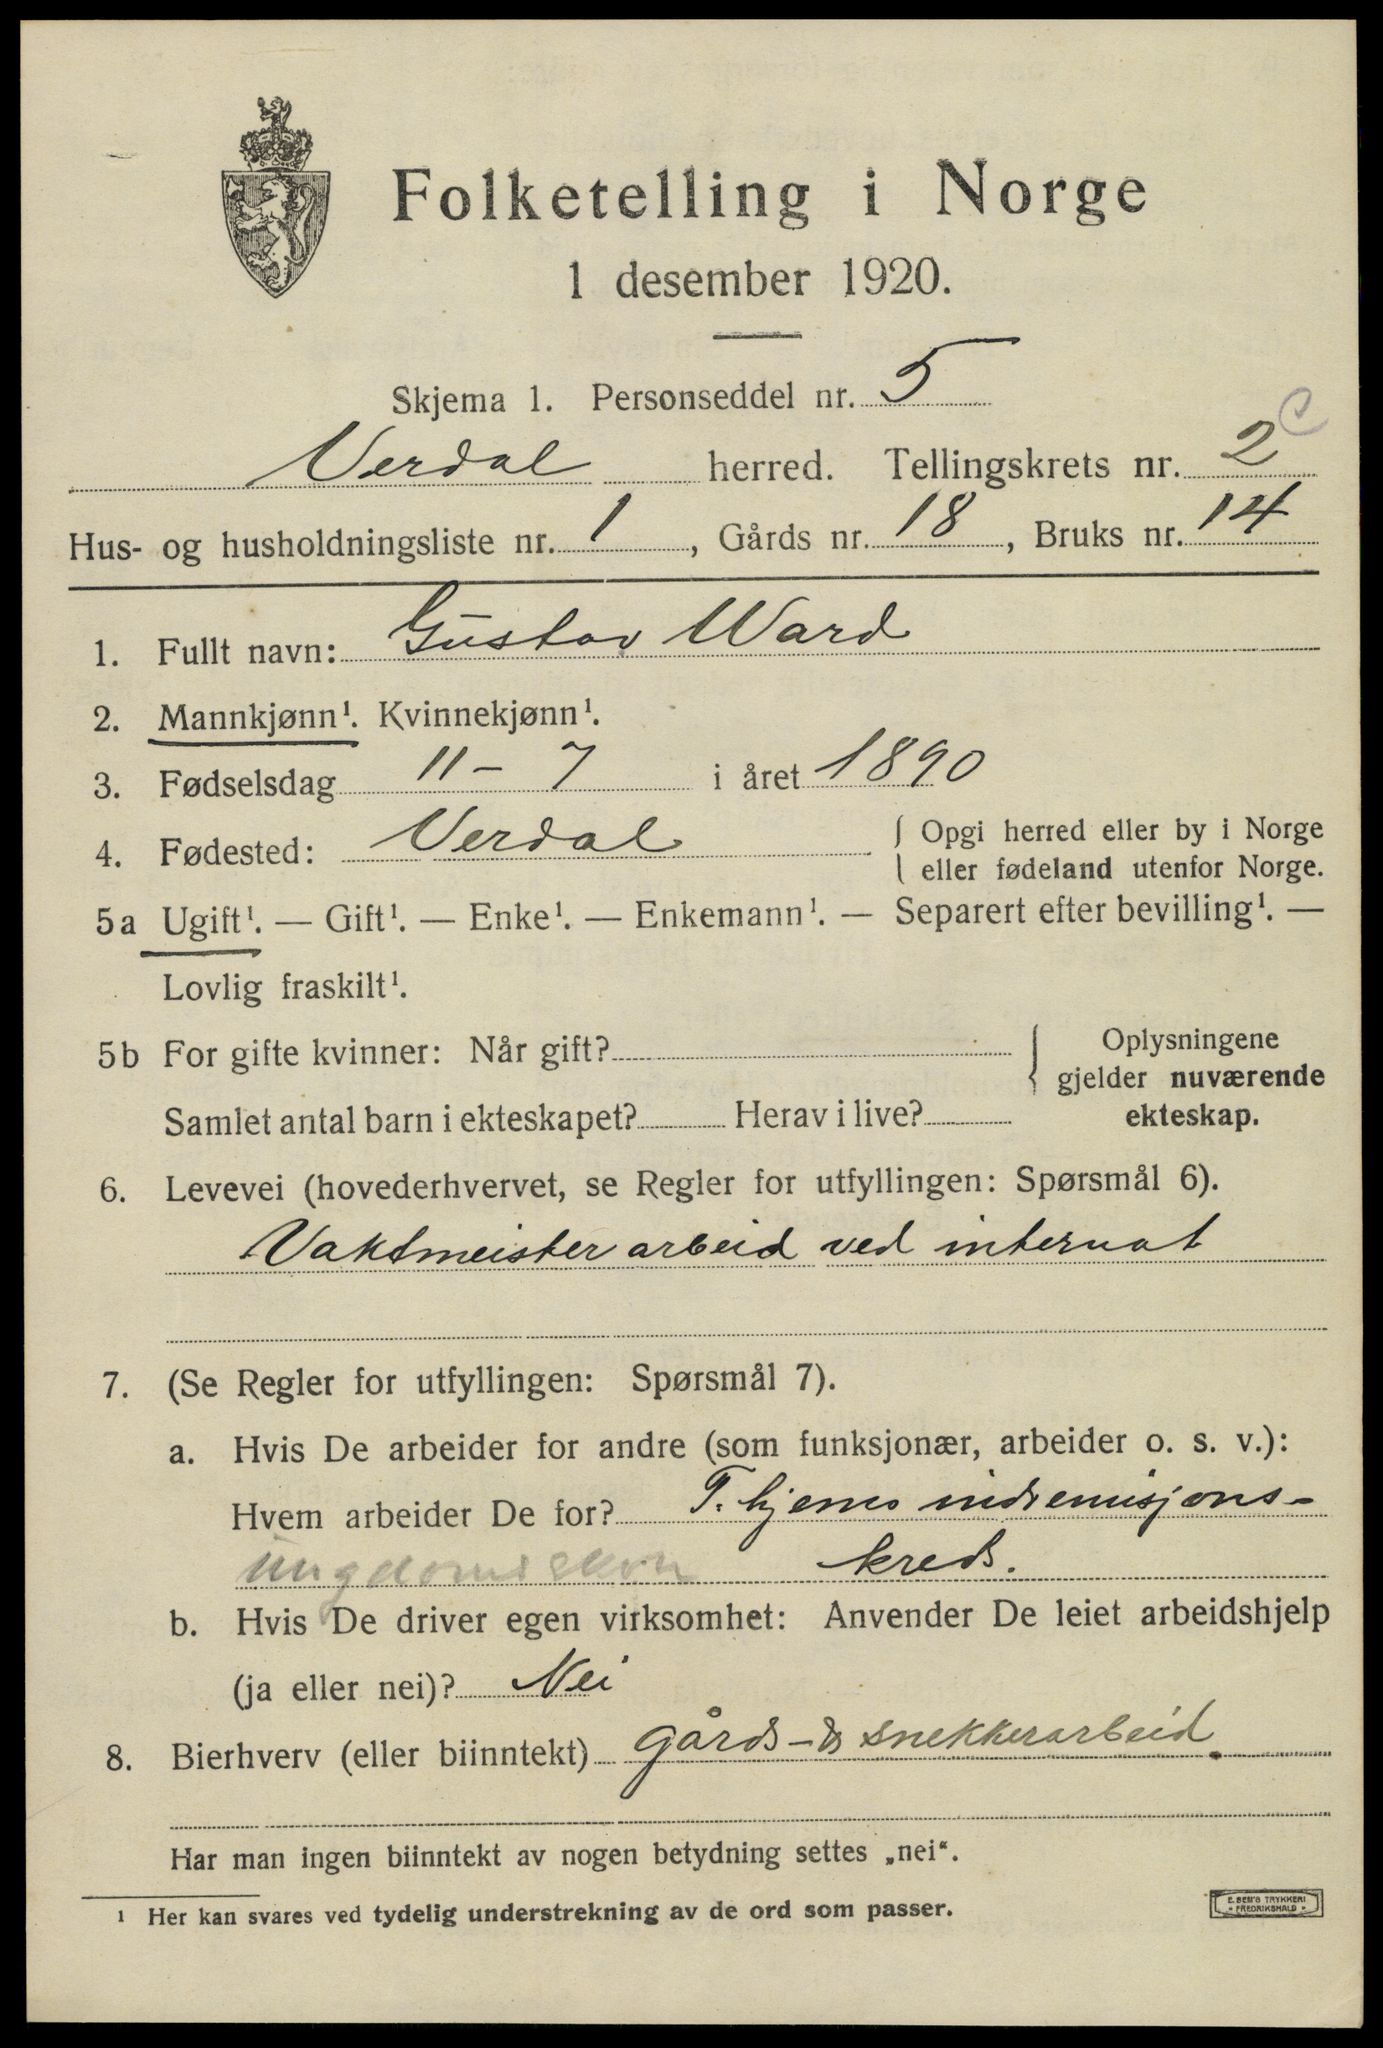 Folketelling i Norge
1 desember 1920.
Skjema 1. Personseddel nr. 5
Verdal herred. Tellingskrets nr. 2 C
Hus- og husholdningsliste nr. 1, Gårds nr. 18, Bruks nr. 14
1. Fullt navn: Gustav Ward
2. Mannkjønn¹. Kvinnekjønn¹.
3. Fødselsdag 11 - 7 i året 1890
4. Fødested: Verdal { Opgi herred eller by i Norge
eller fødeland utenfor Norge.
5a Ugift¹. — Gift¹. — Enke¹. — Enkemann¹. — Separert efter bevilling¹. —
Lovlig fraskilt¹.
5b For gifte kvinner: Når gift? { Oplysningene
gjelder nuværende
Samlet antal barn i ekteskapet? Herav i live? ekteskap.
6. Levevei (hovederhvervet, se Regler for utfyllingen: Spørsmål 6).
Vaktmeisterarbeid ved internat
7. (Se Regler for utfyllingen: Spørsmål 7).
a. Hvis De arbeider for andre (som funksjonær, arbeider o. s. v.):
Hvem arbeider De for? T. hjems indremisjons-
kreds.
b. Hvis De driver egen virksomhet: Anvender De leiet arbeidshjelp
(ja eller nei)? Nei
8. Bierhverv (eller biinntekt) gårds - & snekkerarbeid.
Har man ingen biinntekt av nogen betydning settes „nei“.
¹ Her kan svares ved tydelig understrekning av de ord som passer.
E. SEM'S TRYKKERI
• FREDRIKSHALD •